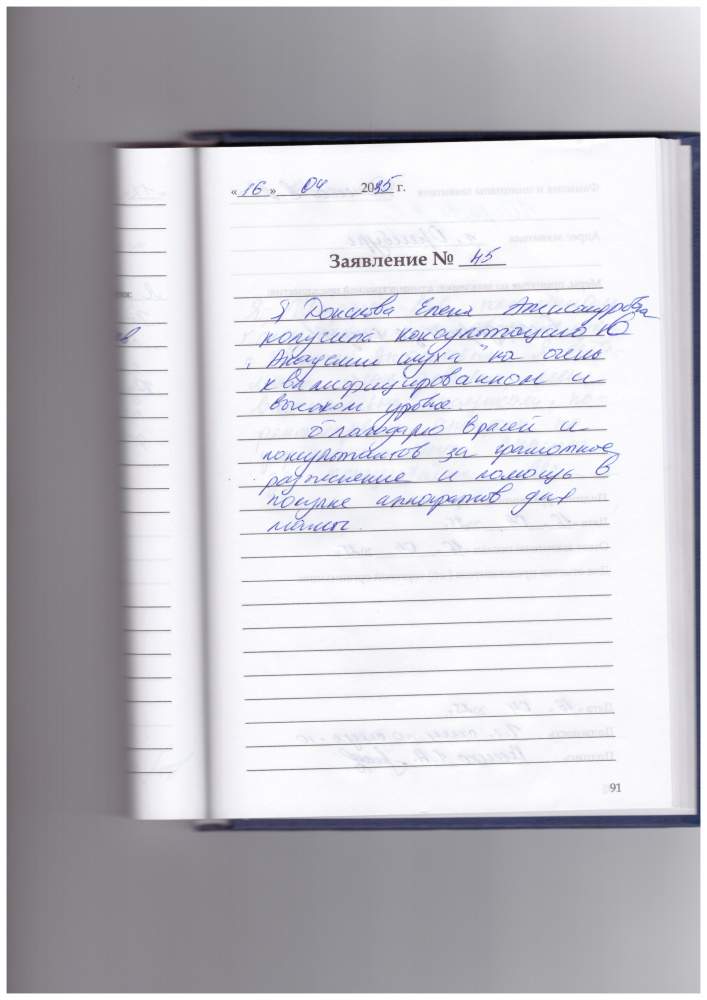 «16» 04 2025 г.
Заявление № 45
Я Донскова Елена Александровна
получила консультацию в
"Академии слуха" на очень
квалифицированном и
высоком уровне
Благодарю врачей и
консультантов за грамотное
разъяснение и помощь в
покупке аппаратов для
мамы.
91